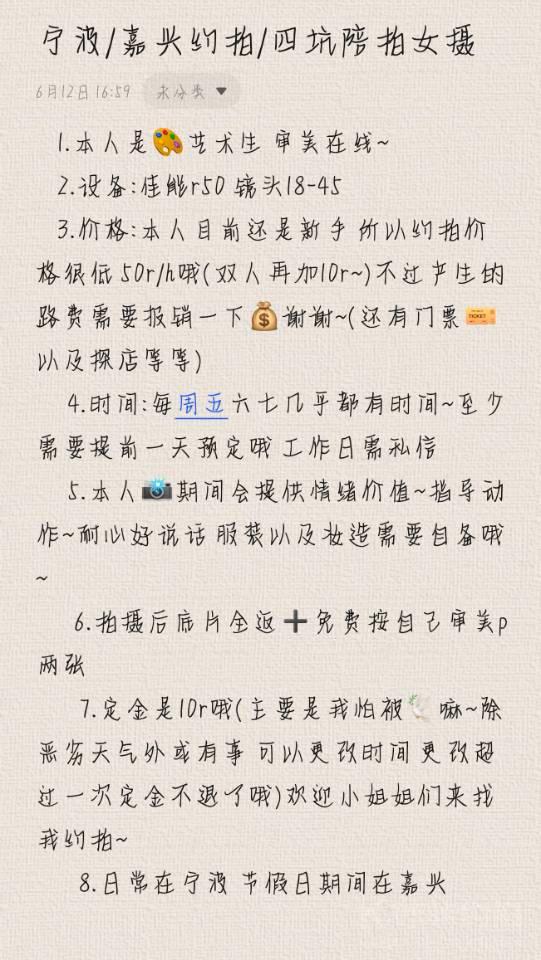 宁波/嘉兴约拍/四坑陪拍女摄
6月12日 16:59 未分类
1.本人是🎨艺术生 审美在线~
2.设备:佳能r50 镜头18-45
3.价格:本人目前还是新手 所以约拍价
格很低 50r/h哦(双人再加10r~)不过产生的
路费需要报销一下💰谢谢~(还有门票🎫
以及探店等等)
4.时间:每周五六七几乎都有时间~至少
需要提前一天预定哦 工作日需私信
5.本人📸期间会提供情绪价值~指导动
作~耐心好说话 服装以及妆造需要自备哦
~
6.拍摄后底片全返➕免费按自己审美p
两张
7.定金是10r哦(主要是我怕被🕊️嘛~除
恶劣天气外或有事 可以更改时间 更改超
过一次定金不退了哦)欢迎小姐姐们来找
我约拍~
8.日常在宁波 节假日期间在嘉兴